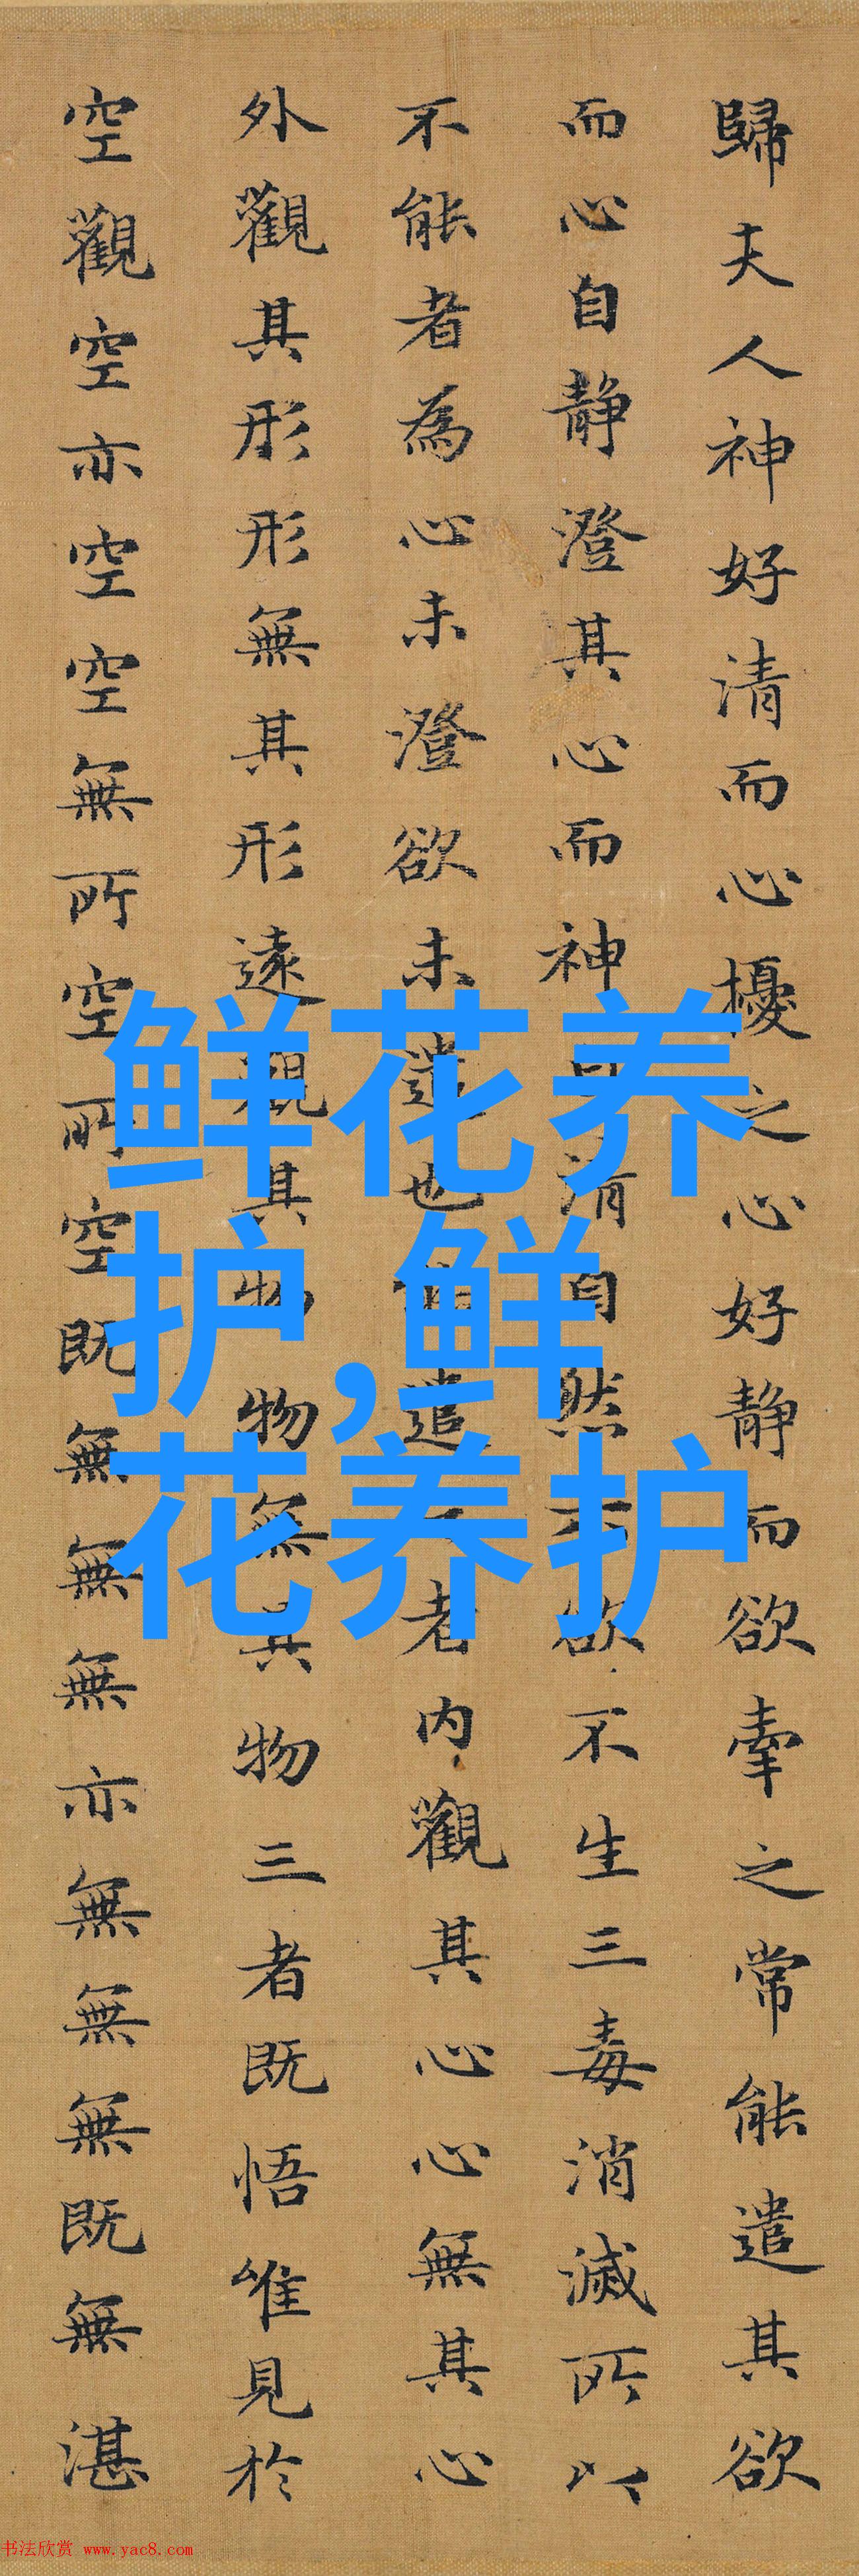 歸夫人神好清而心擾之心好静而欲牽之常能遣其欲
而心自静澄其心而神清自然欲不生三毒消滅所以
不能者為心未澄欲未遣也遣者内觀其心心無其心
外觀其形形無其形遠觀其物物無其物三者既悟唯見於
空觀空亦空空無所空所空既無無無亦無無無既無湛
鲜花养
护,鲜
花养护
书法欣赏 www.yac8.com